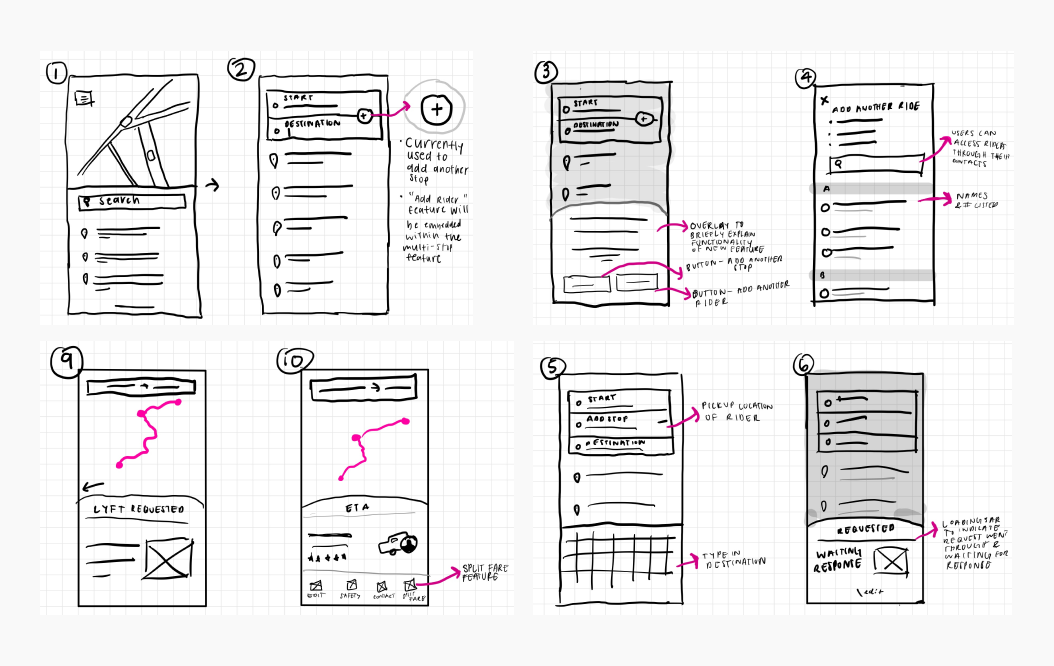 1
Search
2
START
DESTINATION
+
+
• Currently
used to
add another
stop
• "Add Rider"
feature will
be embedded
within the
multi-stop
feature
3
START
DESTINATION
+
OVERLAY TO
BRIEFLY EXPLAIN
FUNCTIONALITY
OF NEW FEATURE
BUTTON - ADD ANOTHER
STOP
BUTTON - ADD ANOTHER
RIDER
4
X
ADD ANOTHER RIDE
USERS CAN
ACCESS RIDER
THROUGH THEIR
CONTACTS
A
NAMES
&#LISTED
B
9
LYFT REQUESTED
10
ETA
EDIT
SAFETY
CONTACT
SPLIT
FARE
SPLIT FARE
FEATURE
5
START
ADD STOP
DESTINATION
PICKUP LOCATION
OF RIDER
TYPE IN
DESTINATION
6
REQUESTED
WAITING
RESPONSE
edit
LOADING BAR
TO INDICATE
REQUEST WENT
THROUGH &
WAITING FOR
RESPONSE